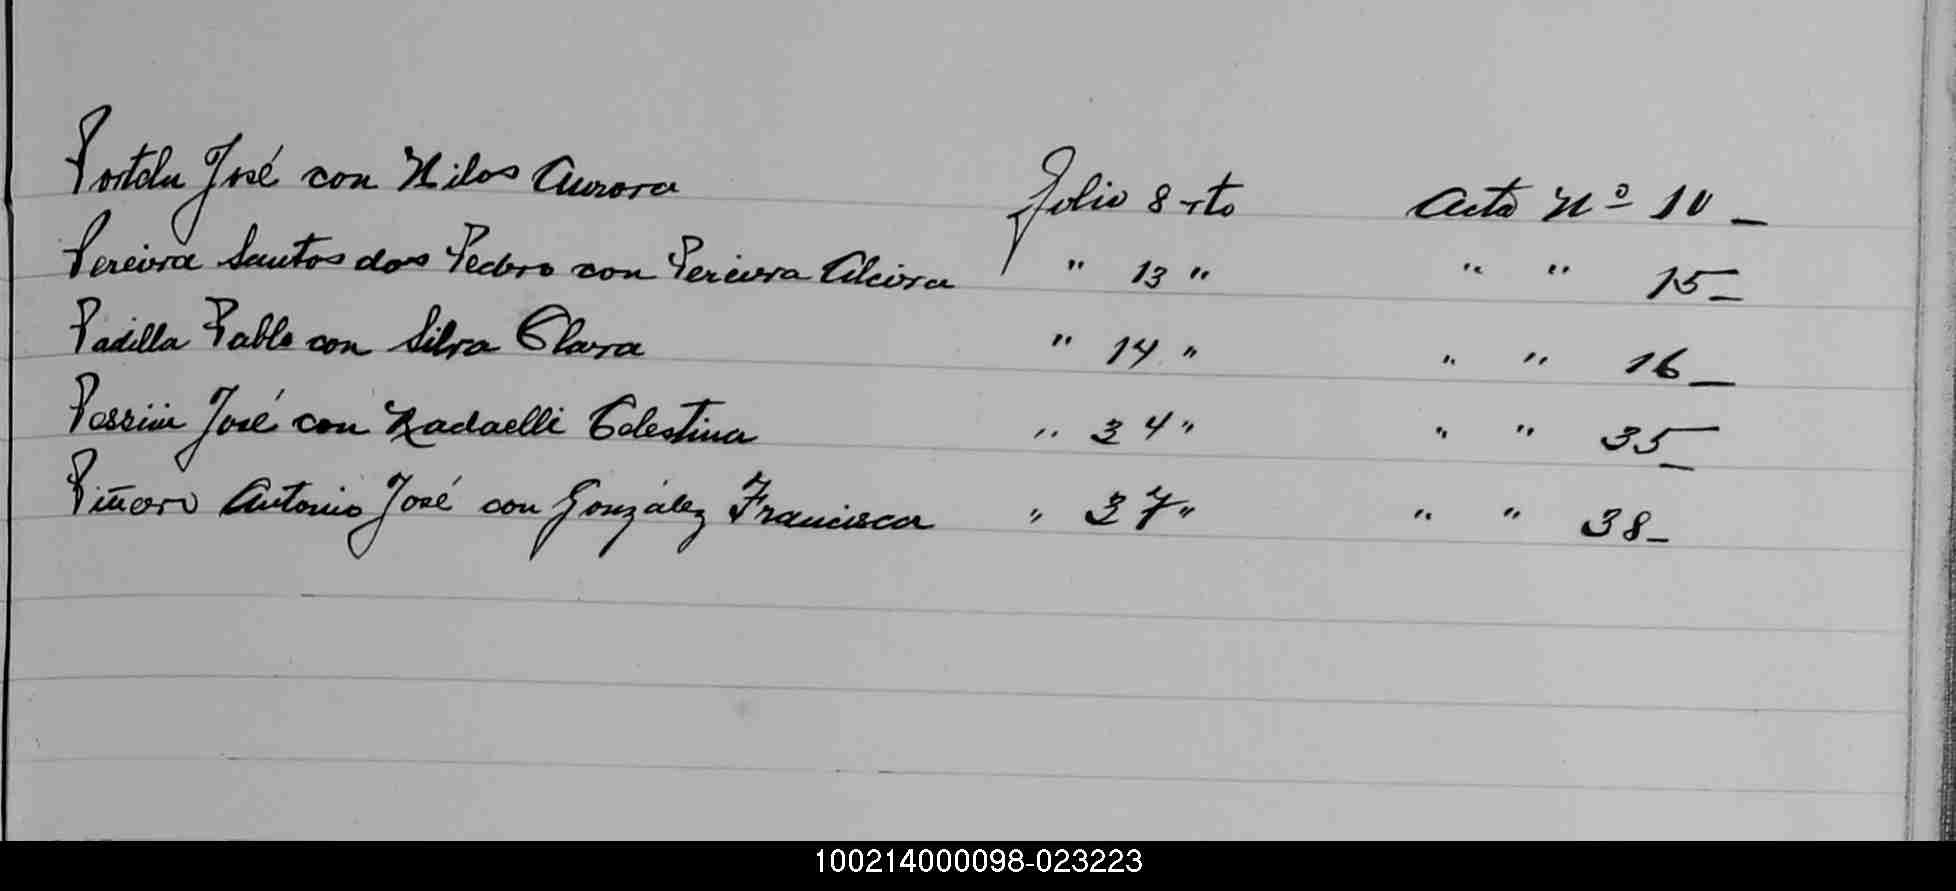 Portela José con Milos Aurora Folio 8 vto Acta Nº 10 _
Pereira Santos dos Pedro con Pereira Alcira " 13 " " " 15 _
Padilla Pablo con Silva Clara " 14 " " " 16 _
José con Radaelli Celestina " 34 " " " 35 _
Piñero Antonio José con González Francisca " 37 " " " 38 _
100214000098-023223